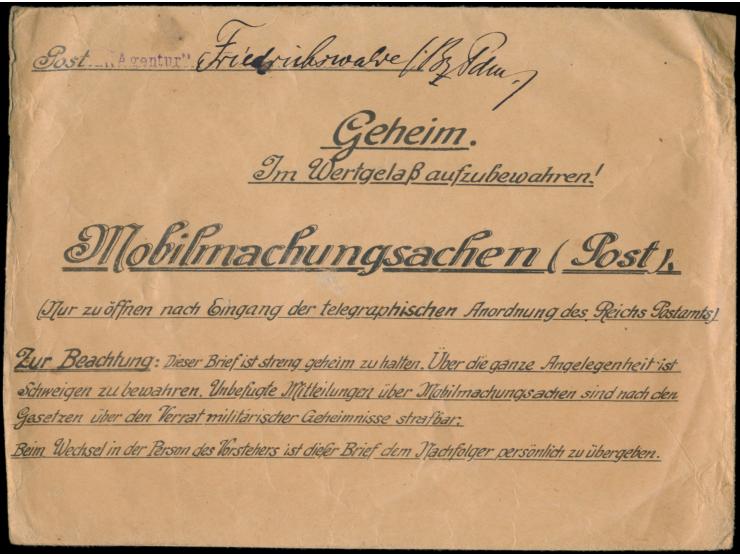 Post „Agentur“ Friedrichswalde (Bz Pdm.)
Geheim.
Im Wertgelaß aufzubewahren!
Mobilmachungsachen (Post).
(Nur zu öffnen nach Eingang der telegraphischen Anordnung des Reichs Postamts)
Zur Beachtung: Dieser Brief ist streng geheim zu halten. Über die ganze Angelegenheit ist
Schweigen zu bewahren. Unbefugte Mitteilungen über Mobilmachungsachen sind nach den
Gesetzen über den Verrat militärischer Geheimnisse strafbar.
Beim Wechsel in der Person des Vorstehers ist dieser Brief dem Nachfolger persönlich zu übergeben.